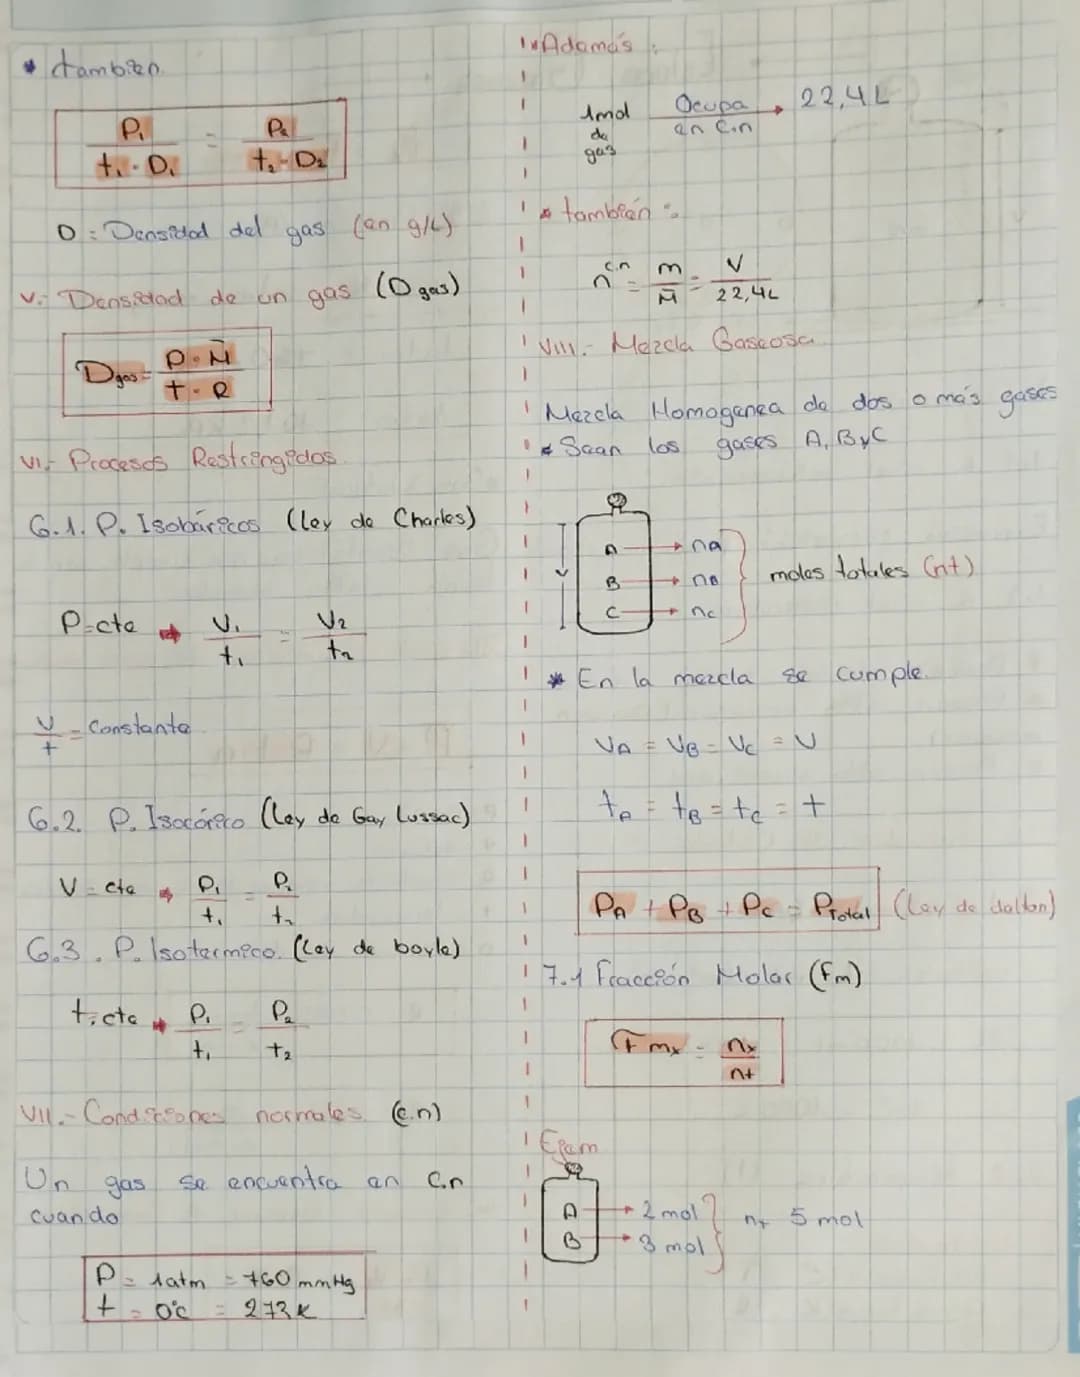 * también
P₁ / t₁ · D₁ = P₂ / t₂ · D₂
D : Densidad del gas (en g/L)
V.- Densidad de un gas (D gas)
Dgas = P · M̄ / t · R
VI.- Procesos Restringidos
6.1. P. Isobáricos (Ley de Charles)
P=cte → V₁ / t₁ = V₂ / t₂
V / t = Constante
6.2. P. Isocórico (Ley de Gay Lussac)
V = cte → P₁ / t₁ = P₂ / t₂
6.3. P. Isotermico. (Ley de boyle)
t: cte → P₁ / t₁ = P₂ / t₂
VII.- Condiciones normales (c.n)
Un gas se encuentra en C.n
cuando
P = 1atm = 760 mmHg
t = 0°c = 273 K
* Además :
1mol de gas Ocupa en C.n → 22,4 L
* también :
n c.n = m / M̄ = V / 22,4L
VIII.- Mezcla Gaseosa
Mezcla Homogenea de dos o más gases
* Sean los gases A, B y C
V
A → na
B → nB
C → nc
moles totales (nt)
* En la mezcla se cumple.
VA = VB = Vc = V
tA = tB = tc = t
PA + PB + Pc = PTotal (Ley de dalton)
7.1 Fracción Molar (fm)
Fmx = nx / nt
Ejem
A → 2 mol
B → 3 mol
nt 5 mol